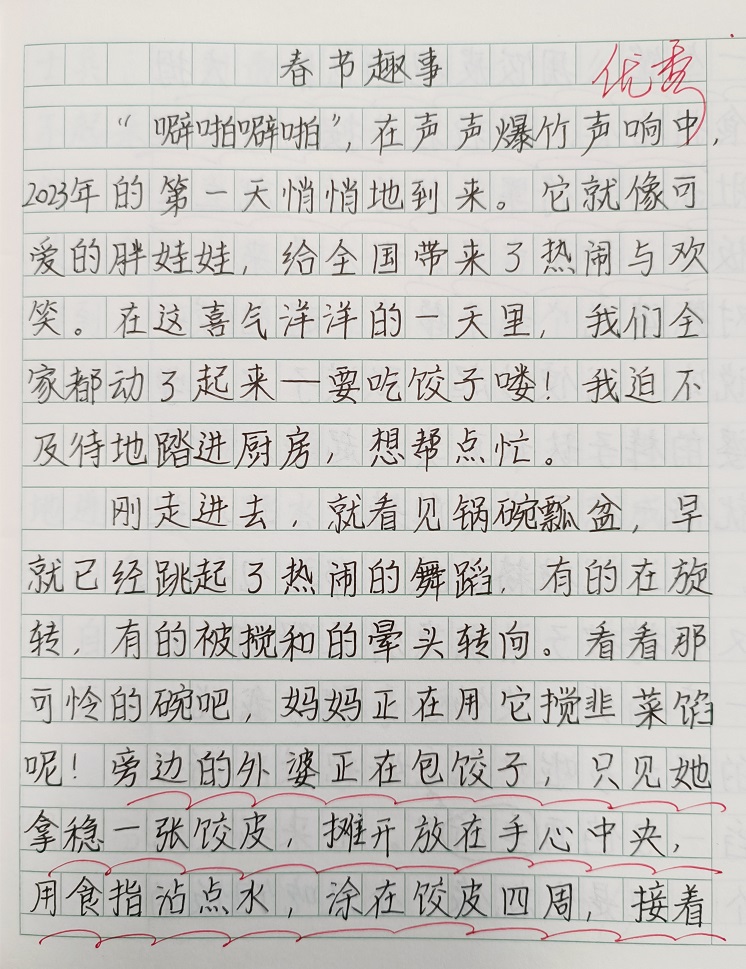 春节趣事
优秀
“噼啪噼啪”,在声声爆竹声响中,
2023年的第一天悄悄地到来。它就像可
爱的胖娃娃,给全国带来了热闹与欢
笑。在这喜气洋洋的一天里,我们全
家都动了起来—要吃饺子喽!我迫不
及待地踏进厨房,想帮点忙。
刚走进去,就看见锅碗瓢盆,早
就已经跳起了热闹的舞蹈,有的在旋
转,有的被搅和的晕头转向。看看那
可怜的碗吧,妈妈正在用它搅韭菜馅
呢!旁边的外婆正在包饺子,只见她
拿稳一张饺皮,摊开放在手心中央,
用食指沾点水,涂在饺皮四周,接着